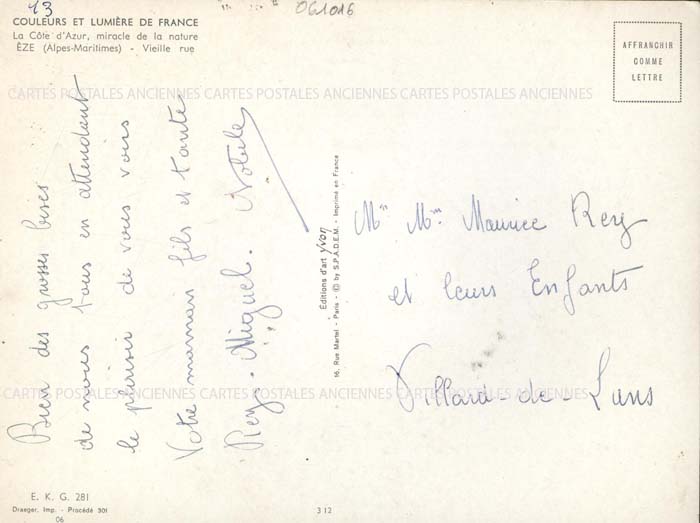 13
061016
COULEURS ET LUMIÈRE DE FRANCE
La Côte d'Azur, miracle de la nature
ÈZE (Alpes-Maritimes) - Vieille rue
AFFRANCHIR
COMME
LETTRE
CARTES POSTALES ANCIENNES CARTES POSTALES ANCIENNES CARTES POSTALES ANCIENNES
Bien des grosses bises
de nous tous en attendant
le plaisir de vous vous
Votre maman fils et tante
Rey. Miguel. Nobile
Editions d'art yvon
16, Rue Martel - Paris - © by S.P.A.D.E.M. - Imprimé en France
Mr Mme Maurice Rey
et leurs Enfants
Villard-de-Lans
CARTES POSTALES ANCIENNES CARTES POSTALES ANCIENNES CARTES POSTALES ANCIENNES
E. K. G. 281
Draeger, Imp. - Procédé 301
06
312